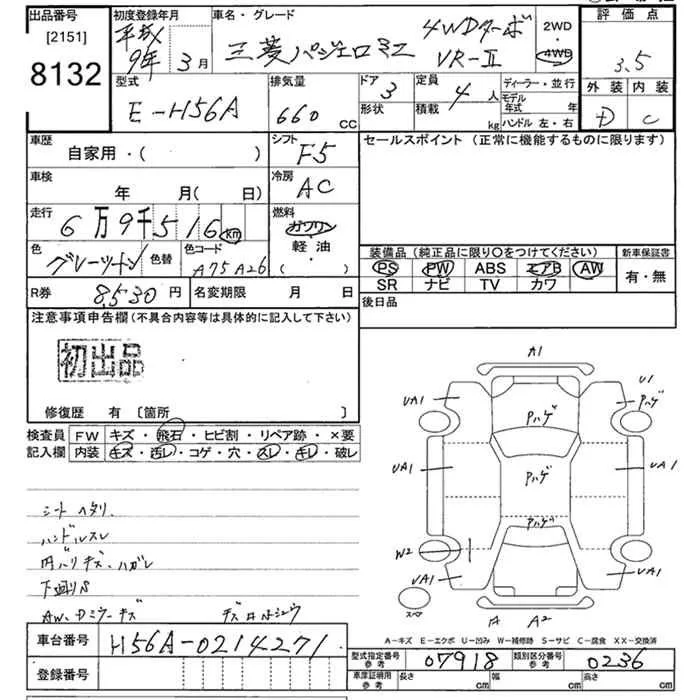 出品番号
[2151]
8132
初度登録年月
平成
9年 3月
車名・グレード
三菱パジェロミニ
4WDターボ
VR-II
2WD
4WD
評価点
3.5
型式
E-H56A
排気量
660 CC
ドア
3
形状
定員
4 人
積載
kg
ディーラー・並行
モデル年式 年
ハンドル 左・右
外装 内装
D C
車歴
自家用・( )
シフト
F5
セールスポイント (正常に機能するものに限ります)
車検
年 月( 日)
冷房
AC
走行
6万9千516 km
燃料
ガソリン
軽油
( )
色
グレーツートン
色替
色コード
A75A26
装備品 (純正品に限り○をつけてください)
新車保証書
PS PW ABS エアB AW
SR ナビ TV カワ
有・無
R券
8,530 円
名変期限 月 日
後日品
注意事項申告欄 (不具合内容等は具体的に記入して下さい)
初出品
修復歴 有 [箇所 ]
検査員
記入欄
FW キズ・飛石・ヒビ割・リペア跡・×要
内装 キズ・汚レ・コゲ・穴・スレ・キレ・破レ
シートヘタリ.
ハンドルスレ
内バリキズ・ハガレ
下回りS
AW.Dミラーキズ
A1
UA1
U1
Pハゲ
Pハゲ
UA1
Pハゲ
UA1
Pハゲ
W2
UA1
UA1
スペア
A
A2
A-キズ E-エクボ U-凹み W-補修跡 S-サビ C-腐食 XX-交換済
車台番号
H56A-0214271
登録番号
型式指定番号
参考
07918
類別区分番号
参考
0236
車庫証明用
参考
長さ cm
幅 cm
高さ cm